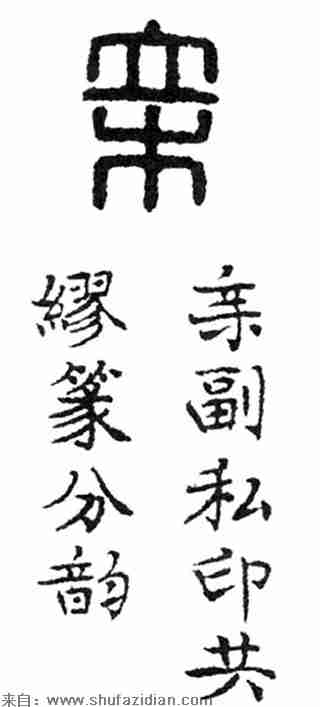 亲
亲副私印共
繆篆分韵
来自：www.shufazidian.com